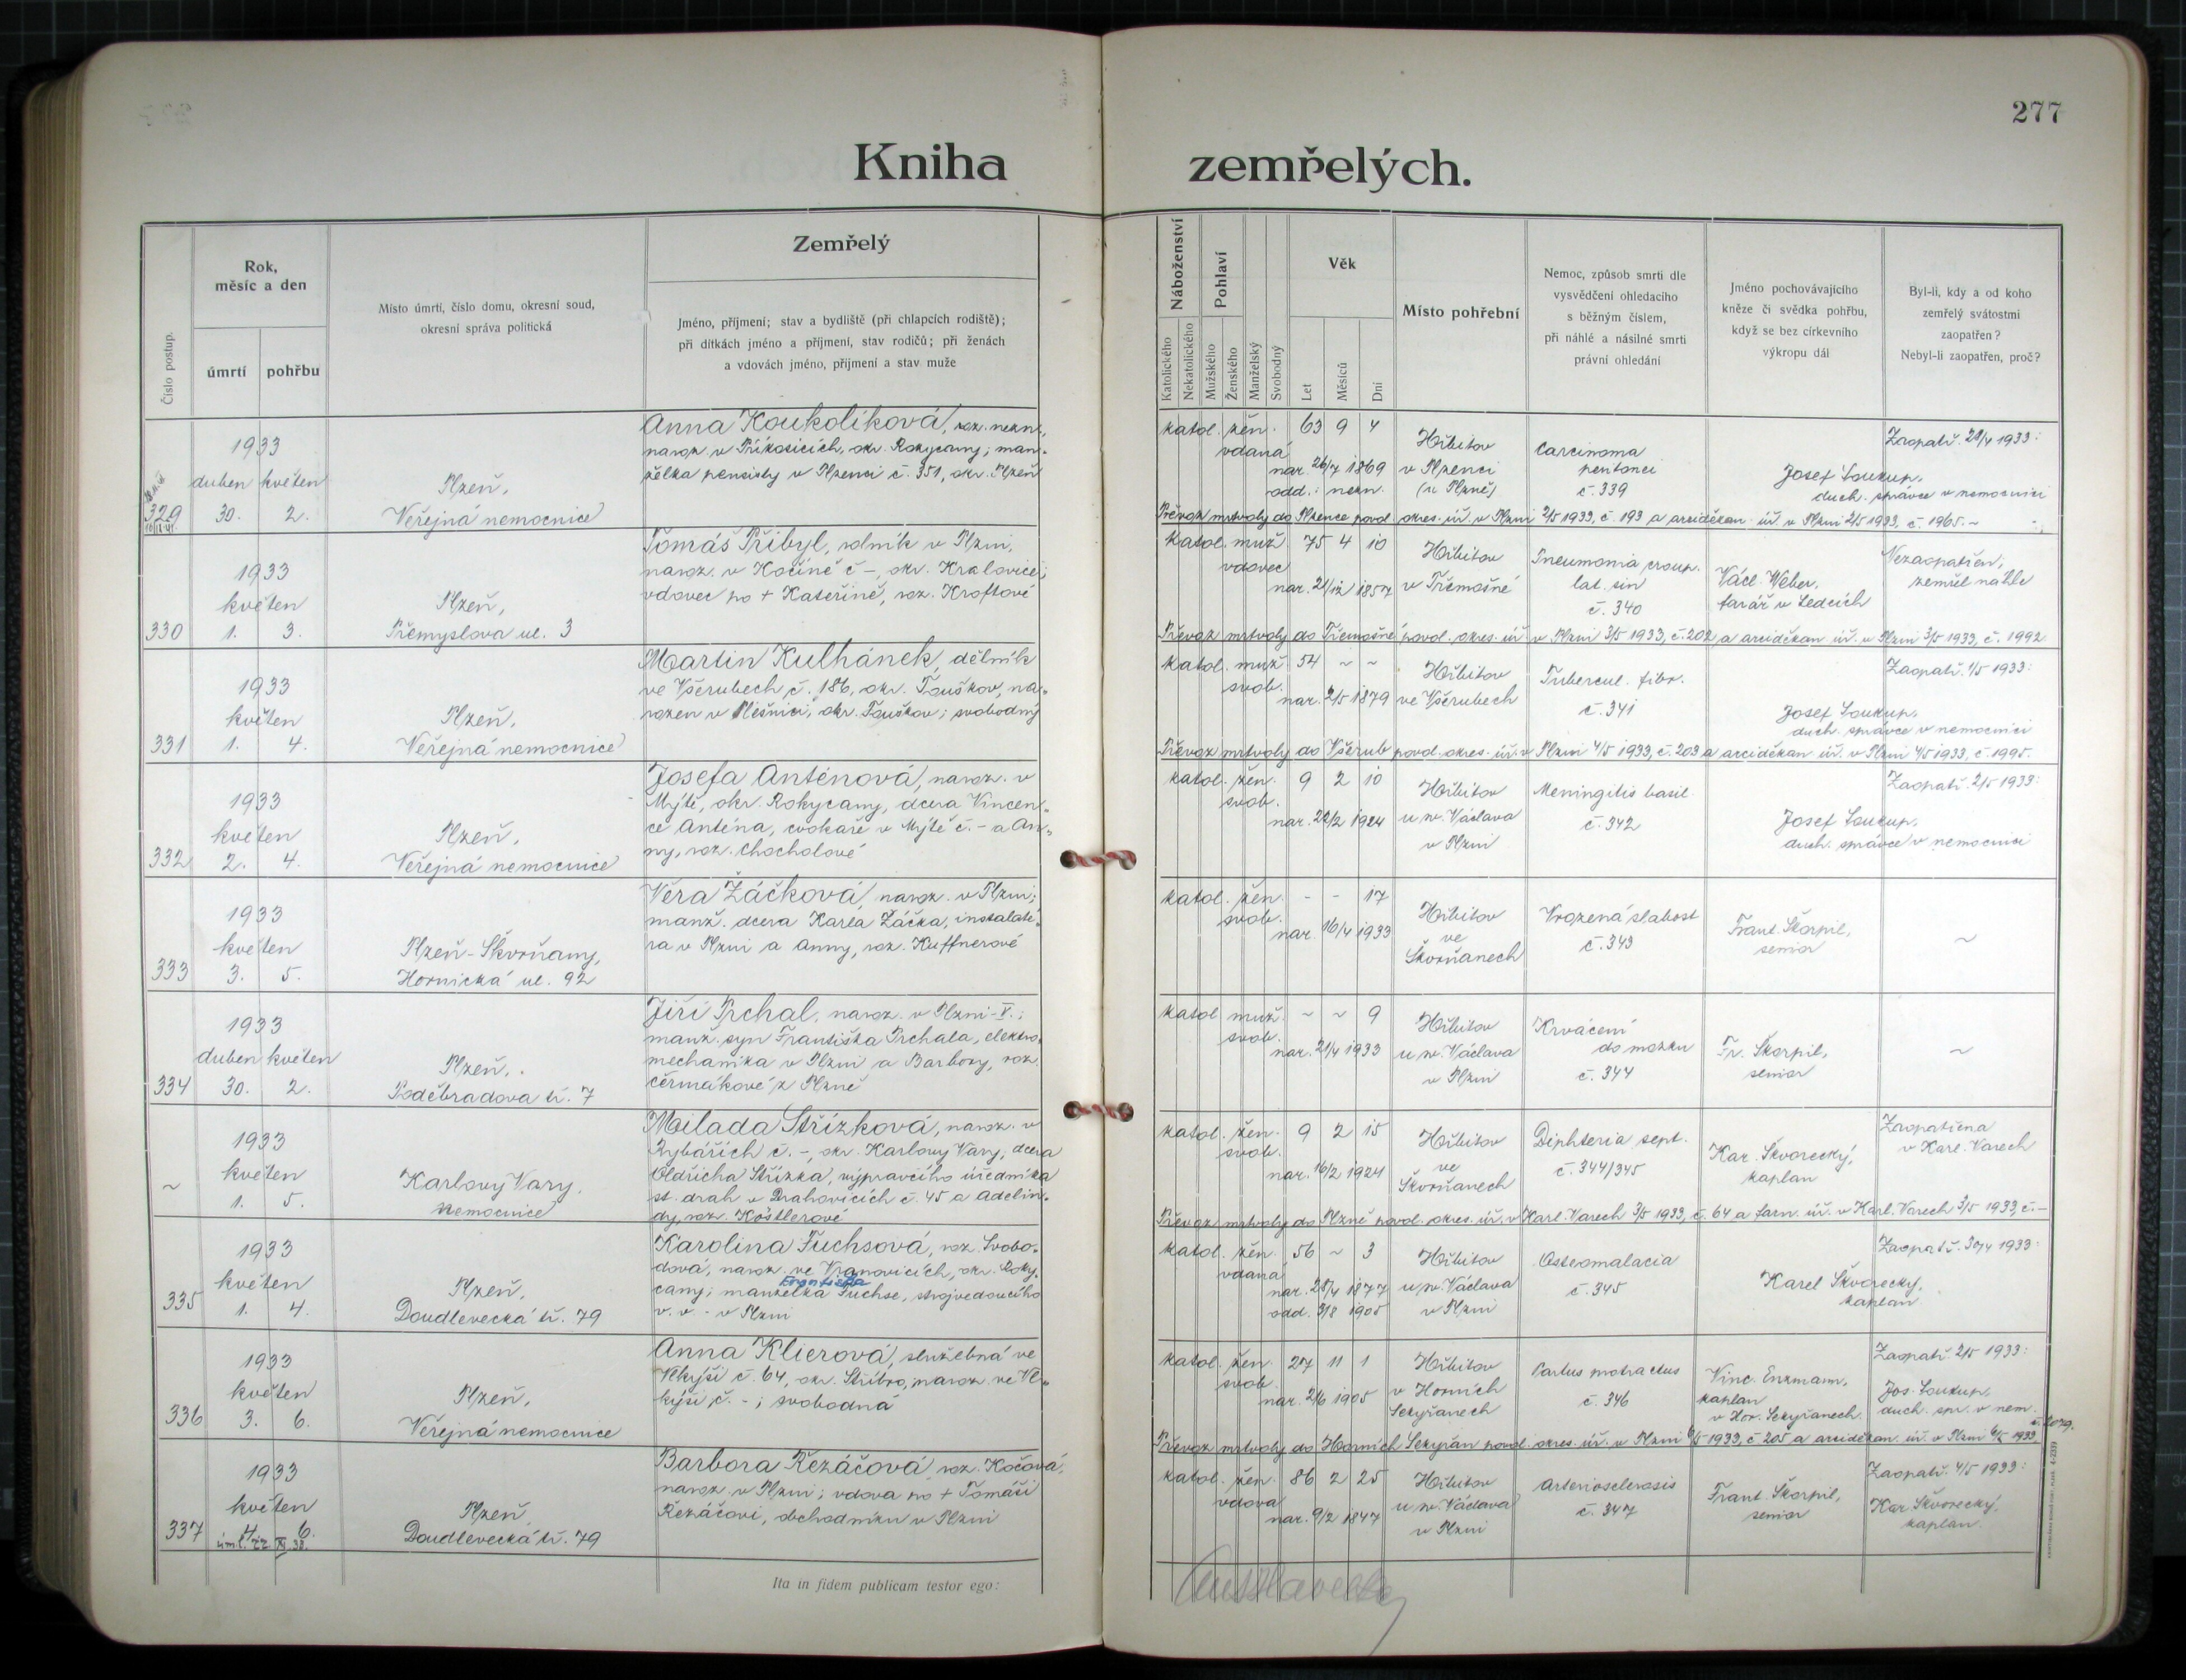 277
Kniha zemřelých.
Číslo postup.
Rok,
měsíc a den
úmrtí
pohřbu
Místo úmrtí, číslo domu, okresní soud,
okresní správa politická
Zemřelý
Jméno, příjmení; stav a bydliště (při chlapcích rodiště);
při dítkách jméno a příjmení, stav rodičů; při ženách
a vdovách jméno, příjmení a stav muže
Náboženství
Katolického
Nekatolického
Pohlaví
Mužského
Ženského
Manželský
Svobodný
Věk
Let
Měsíců
Dní
Místo pohřební
Nemoc, způsob smrti dle
vysvědčení ohledacího
s běžným číslem,
při náhlé a násilné smrti
právní ohledání
Jméno pochovávajícího
kněze či svědka pohřbu,
když se bez církevního
výkropu dál
Byl-li, kdy a od koho
zemřelý svátostmi
zaopatřen?
Nebyl-li zaopatřen, proč?
329
1933
duben květen
30. 2.
Plzeň,
Veřejná nemocnice
Anna Koukolíková, roz. nezn.,
naroz. v Příkosicích, okr. Rokycany; man-
želka pensisty v Plzenci č. 351, okr. Plzeň
katol. žen. 63 9 4
vdaná
nar. 26/7 1869
odd.: nezn.
Hřbitov
v Plzenci
(u Plzně)
Carcinoma
peritonei
č. 339
Zaopatř. 28/4 1933:
Josef Soukup,
duch. správce v nemocnici
Převoz mrtvoly do Plzence povol. okres. úř. v Plzni 2/5 1933, č. 193 a arciděkan. úř. v Plzni 2/5 1933, č. 1965. ~
330
1933
květen
1. 3.
Plzeň,
Přemyslova ul. 3
Tomáš Přibyl, rolník v Plzni,
naroz. v Kočíně č -, okr. Kralovice;
vdovec po + Kateřině, roz. Kroftové
katol. muž. 75 4 10
vdovec
nar. 21/12 1857
Hřbitov
v Třemošné
Pneumonia croup.
lat. sin
č. 340
Václ. Weber,
farář v Ledcích
Nezaopatřen,
zemřel náhle
Převoz mrtvoly do Třemošné povol. okres. úř. v Plzni 3/5 1933, č. 202 a arciděkan. úř. v Plzni 3/5 1933, č. 1992.
331
1933
květen
1. 4.
Plzeň,
Veřejná nemocnice
Martin Kulhánek, dělník
ve Všerubech č. 186, okr. Touškov, na-
rozen v Plešnici, okr. Touškov; svobodný
katol. muž. 54 ~ ~
svob.
nar. 2/5 1879
Hřbitov
ve Všerubech
Tubercul. fibr.
č. 341
Zaopatř. 1/5 1933:
Josef Soukup,
duch. správce v nemocnici
Převoz mrtvoly do Všerub povol. okres. úř. v Plzni 4/5 1933, č. 203 a arciděkan. úř. v Plzni 4/5 1933, č. 1995.
332
1933
květen
2. 4.
Plzeň,
Veřejná nemocnice
Josefa Anténová, naroz. v
Mýtě, okr. Rokycany, dcera Vincen-
ce Anténa, cvokaře v Mýtě č. - a An-
ny, roz. Chocholové
katol. žen. 9 2 10
svob.
nar. 22/2 1924
Hřbitov
u sv. Václava
v Plzni
Meningitis basil.
č. 342
Zaopatř. 2/5 1933:
Josef Soukup,
duch. správce v nemocnici
333
1933
květen
3. 5.
Plzeň-Skvrňany,
Hornická ul. 92
Věra Žáčková, naroz. v Plzni;
manž. dcera Karla Žáčka, instalaté-
ra v Plzni a Anny, roz. Kuffnerové
katol. žen. - - 17
svob.
nar. 16/4 1933
Hřbitov
ve
Skvrňanech
Vrozená slabost
č. 343
Frant. Škorpil,
senior
~
334
1933
duben květen
30. 2.
Plzeň,
Poděbradova tř. 7
Jiří Prchal, naroz. v Plzni-V.;
manž. syn Františka Prchala, elektro-
mechanika v Plzni a Barbory, roz.
Čermákové z Plzně
katol. muž. ~ ~ 9
svob.
nar. 21/4 1933
Hřbitov
u sv. Václava
v Plzni
Krvácení
do mozku
č. 344
Fr. Škorpil,
senior
~
~
1933
květen
1. 5.
Karlovy Vary,
Nemocnice
Milada Střízková, naroz. v
Rybářích č. -, okr. Karlovy Vary, dcera
Oldřicha Střízka, výpravčího úředníka
st. drah v Drahovicích č. 45 a Adelin-
dy, roz. Köstlerové
katol. žen. 9 2 15
svob.
nar. 16/2 1924
Hřbitov
ve
Skvrňanech
Diphteria sept.
č. 344/345
Kar. Škvorecký,
kaplan
Zaopatřena
v Karl. Varech
Převoz mrtvoly do Plzně povol. okres. úř. v Karl. Varech 3/5 1933, č. 64 a farn. úř. v Karl. Varech 3/5 1933, č. -
335
1933
květen
1. 4.
Plzeň,
Doudlevecká tř. 79
Karolina Fuchsová, roz. Svobo-
dová, naroz. ve Vranovicích, okr. Roky-
Františka
cany; manželka Fuchse, strojvedoucího
v. v. - v Plzni
katol. žen. 56 ~ 3
vdaná
nar. 28/4 1877
odd. 3/8 1905
Hřbitov
u sv. Václava
v Plzni
Osteomalacia
č. 345
Zaopatř. 30/4 1933:
Karel Škvorecký,
kaplan
336
1933
květen
3. 6.
Plzeň,
Veřejná nemocnice
Anna Klierová, služebná ve
Vlkýši č. 64, okr. Stříbro, naroz. ve Vl-
kýši č. - ; svobodná
katol. žen. 27 11 1
svob.
nar. 2/6 1905
Hřbitov
v Horních
Sekyřanech
Partus protractus
č. 346
Vinc. Enzmann,
kaplan
v Hor. Sekyřanech
Zaopatř. 2/5 1933:
Jos. Soukup,
duch. spr. v nem.
Převoz mrtvoly do Horních Sekyřan povol. okres. úř. v Plzni 6/5 1933, č 205 a arciděkan. úř. v Plzni 6/5 1933,
337
1933
květen
4. 6.
Plzeň
Doudlevecká tř. 79
Barbora Řezáčová, roz. Kočová,
naroz. v Plzni; vdova po + Tomáši
Řezáčovi, obchodníku v Plzni
katol. žen. 86 2 25
vdova
nar. 9/2 1847
Hřbitov
u sv. Václava
v Plzni
Arteriosclerosis
č. 347
Frant. Škorpil,
senior
Zaopatř. 4/5 1933:
Kar. Škvorecký,
kaplan
Ita in fidem publicam testor ego: